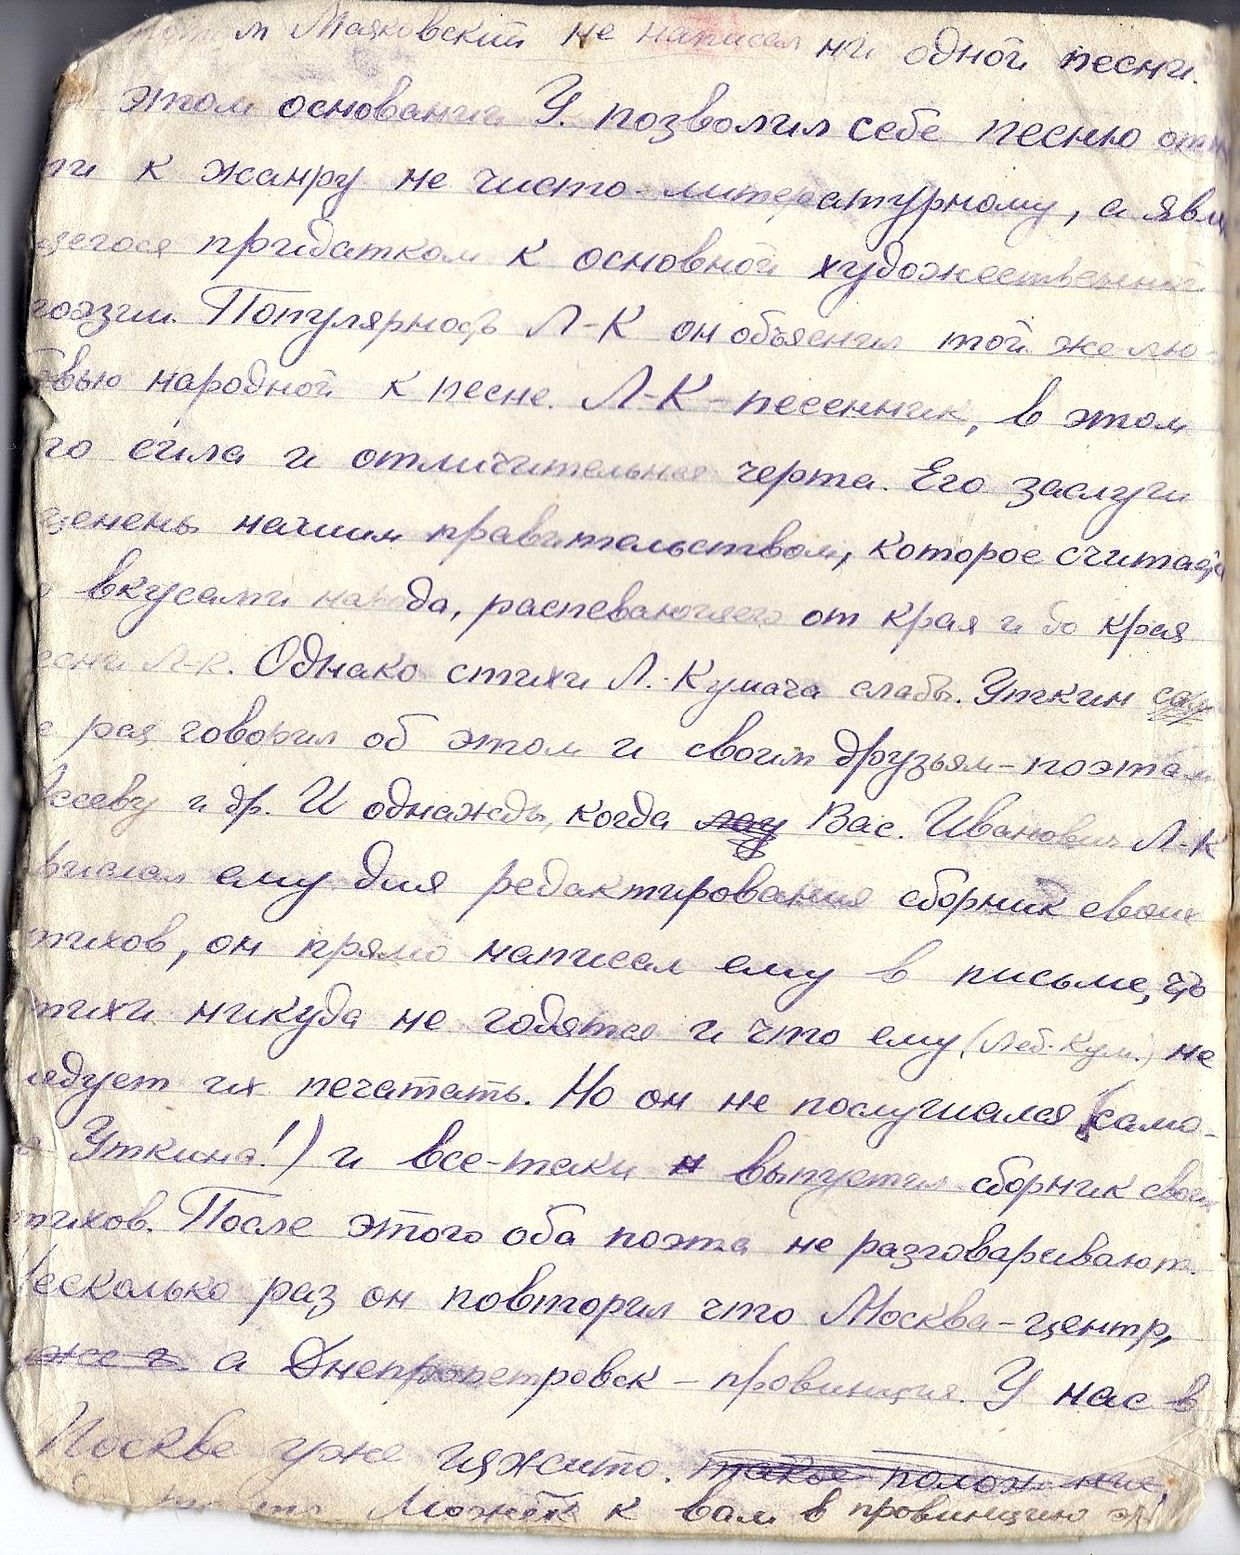 м Маяковский не написал ни одной песни.
этом основании У. позволил себе песню отн
ти к жанру не чисто-литературному, а явл
щегося придатком к основной художественной
поэзии. Популярность Л-К он объяснил той же лю-
бовью народной к песне. Л-К-песенник, в этом
го сила и отличительная черта. Его заслуги
оценены нашим правительством, которое считает
вкусами народа, распевающего от края и до края
есни Л-К. Однако стихи Л.-Кумача слабы. Уткин
раз говорил об этом и своим друзьям-поэтам
и др. И однажды, когда Вас. Иванович Л-К
прислал ему для редактирования сборник своих
тихов, он прямо написал ему в письме, что
тихи никуда не годятся и что ему (Леб.-Кум.) не
ледует их печатать. Но он не послушался (само-
Уткина!) и все-таки выпустил сборник свои
тихов. После этого оба поэта не разговаривают.
Несколько раз он повторил что Москва-центр,
а Днепропетровск-провинция. У нас в
Москве уже изжито. такое положение
Может к вам в провинцию